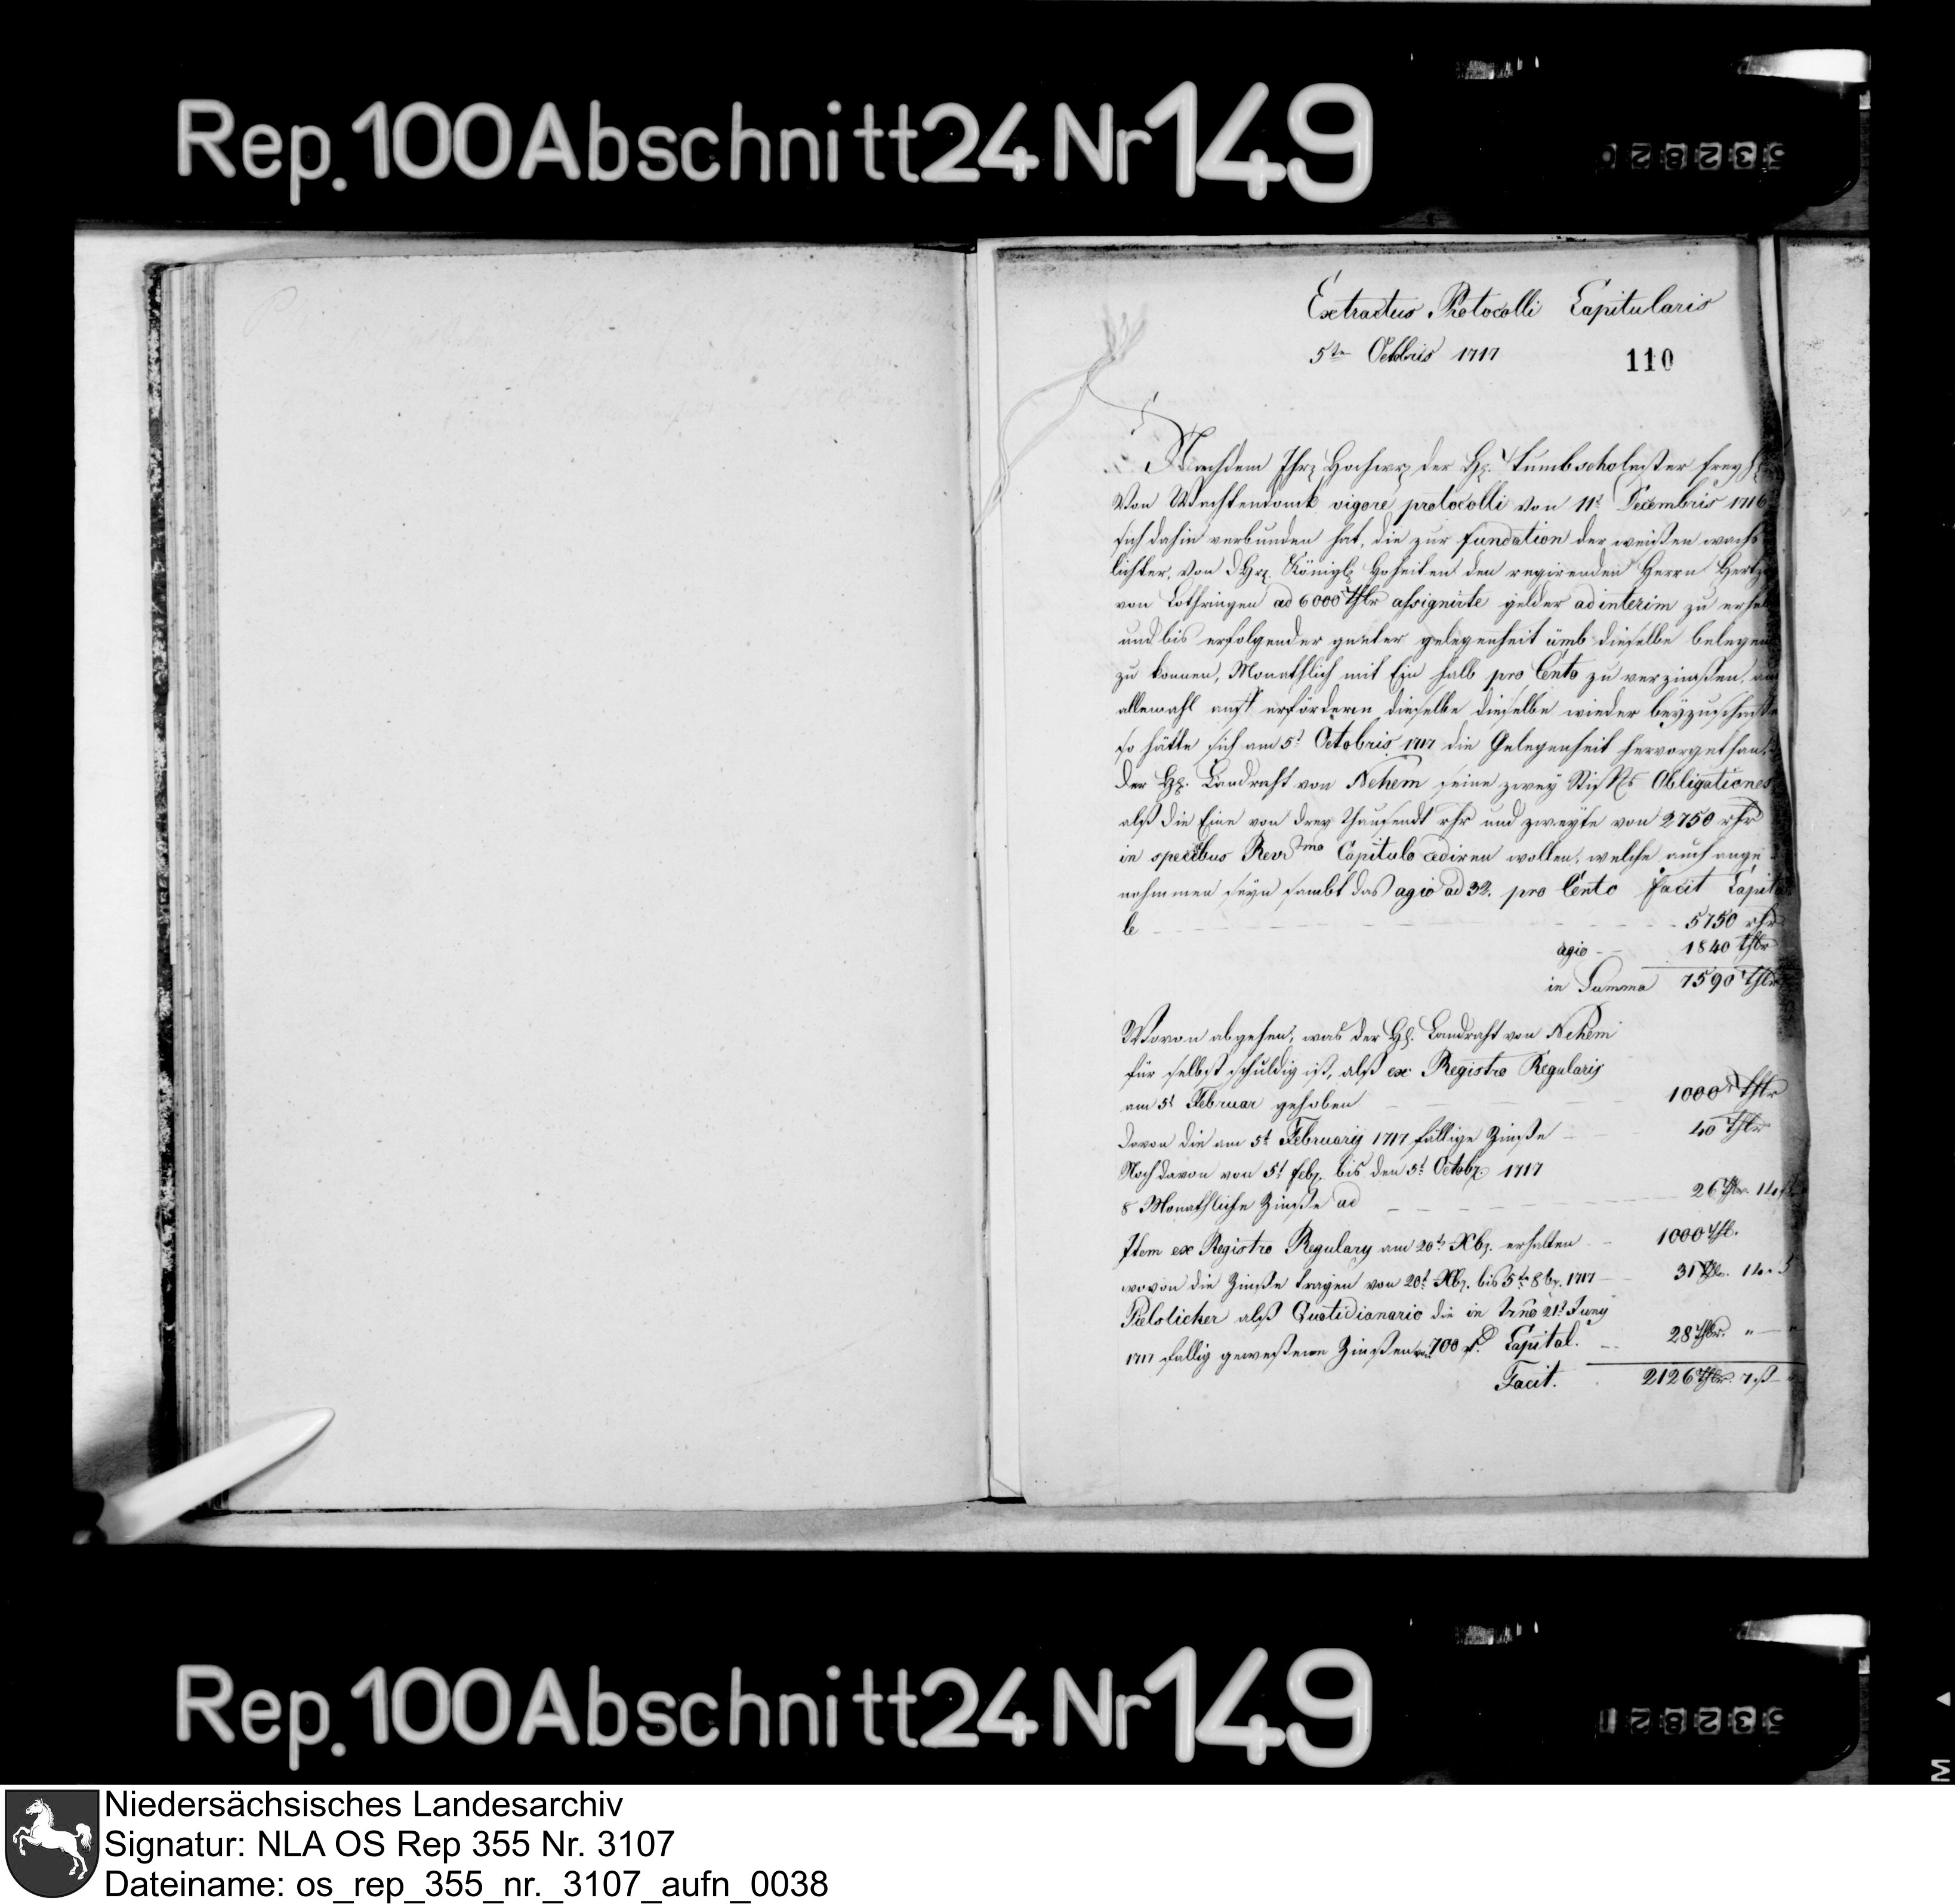 Rep. 100 Abschnitt 24 Nr 149
Extractus Protocolli Capitularis
5ta Octobris 1717
110
Nachdem Ihr Hochwr. der H. Tumbscholaster freyh
von Wachtendonck vigore protocolli von 11t Decembris 1716
sich dahin verbunden hat, die zur fundation der weißen wachs
lichter, von Königl. Hoheiten den regirenden Herrn Hertzo
von Lothringen ad 6000 Thlr assignirte gelder ad interim zu
und bis erfolgender gueter gelegenheit umb dieselbe belegen
zu konnen, Monathlich mit Ein halb pro Cento zu verzinßen,
allemahl auff erfördern dieselbe dieselbe wieder
so hätte sich am 5t Octobris 1717 die Gelegenheit hervorgethan
der H. Landraht von Nehem seine zwey Stiffts Obligationes
alß die Eine von drey thausendt rthr und zweyte von 2750 rthr
in speciebus Revdmo Capitulo cediren wollen, welche auch ange
nohmmen seyn sambt das agio ad 32. pro Cento facit Capita
le 5750 rthr
agio 1840 thlr
in Summa 7590 thlr
Wovon abgehen, was der H. Landraht von Nehem
für selbst schuldig ist, alß ex Registro Regularis
am 5t Februar gehoben 1000 thlr
davon die am 5t Februarij 1717 fällige Zinße 40 thlr
Noch davon von 5t feb. bis den 5t Octob. 1717
8 Monathliche Zinße ad 26 thlr. 14
Item ex Registro Regulary am 20t Xb. erhalten 1000 thl.
wovon die Zinße tragen von 20t Xb. bis 5ta 8b. 1717 31 thlr. 14. 5
alß Quotidianario die in 21t Juny
1717 fallig geweßenen Zinßen von 700 Capital. 28 thlr. " — "
Facit. 2126 thlr. 7 ß
Rep. 100 Abschnitt 24 Nr 149
M
Niedersächsisches Landesarchiv
Signatur: NLA OS Rep 355 Nr. 3107
Dateiname: os_rep_355_nr._3107_aufn_0038